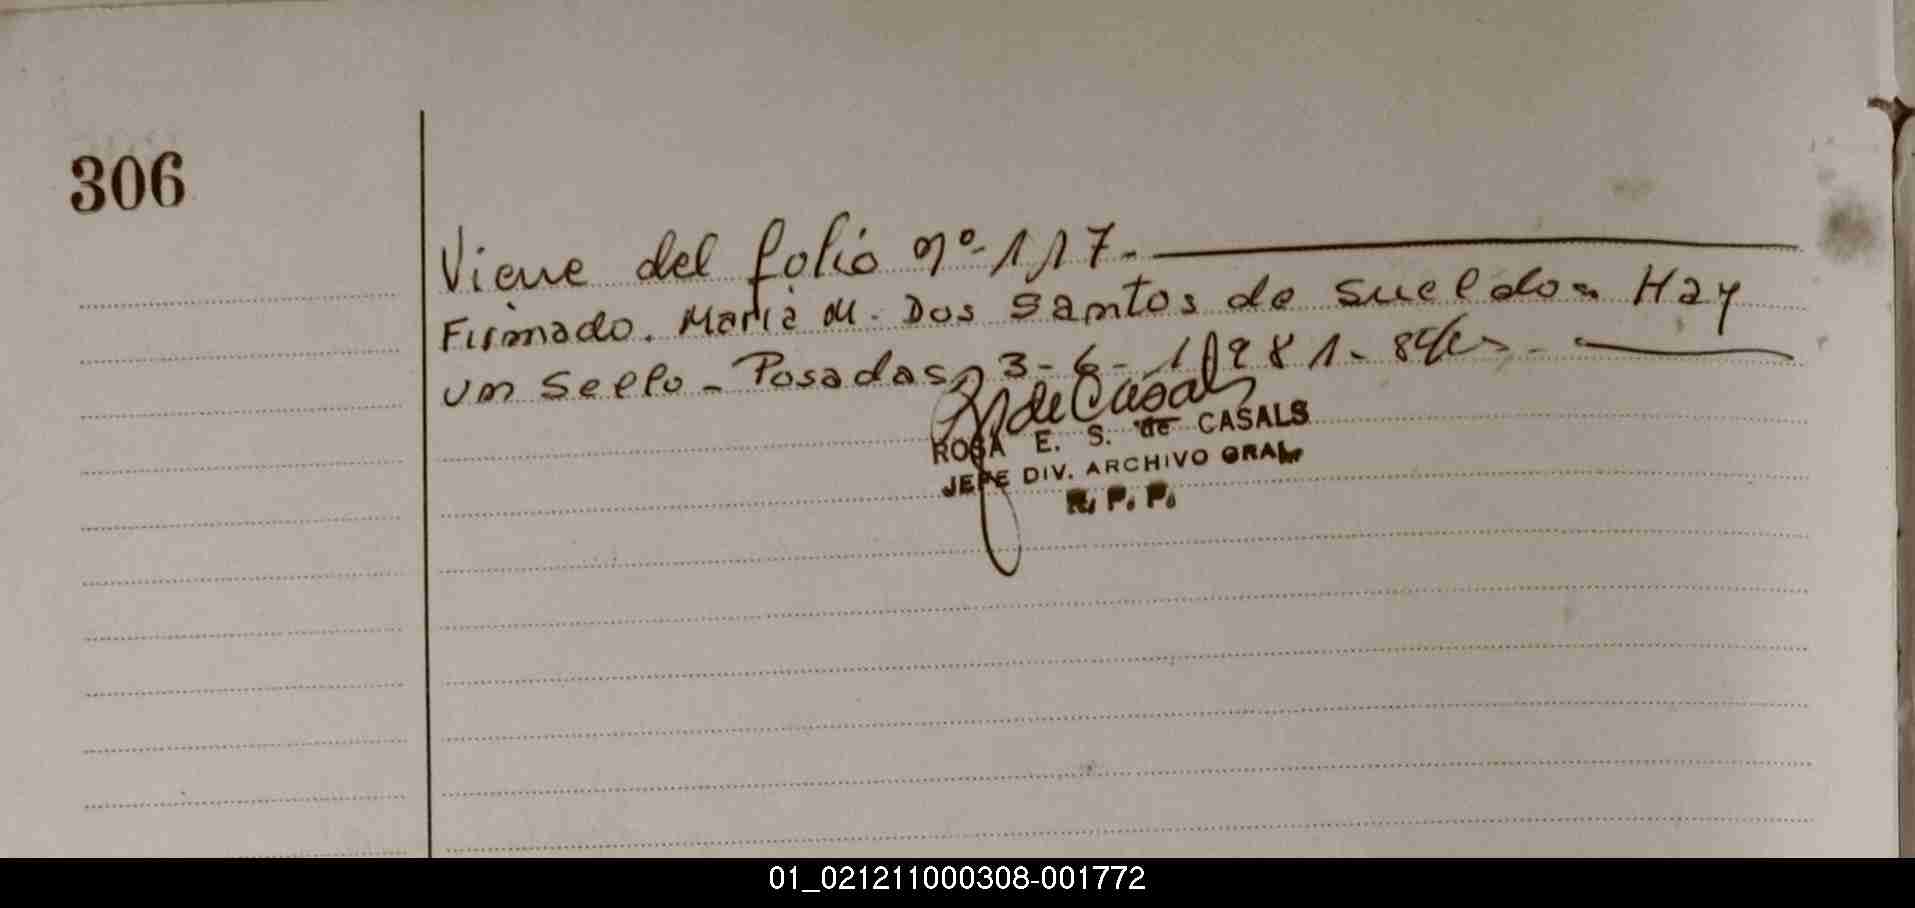 306
Viene del folio nº 117.-
Firmado. Maria M. Dos Santos de Sueldo. Hay
un Sello - Posadas, 3-6-1981.-
de Casals
ROSA E. S. de CASALS
JEFE DIV. ARCHIVO GRAL.
R. P. P.
01_021211000308-001772